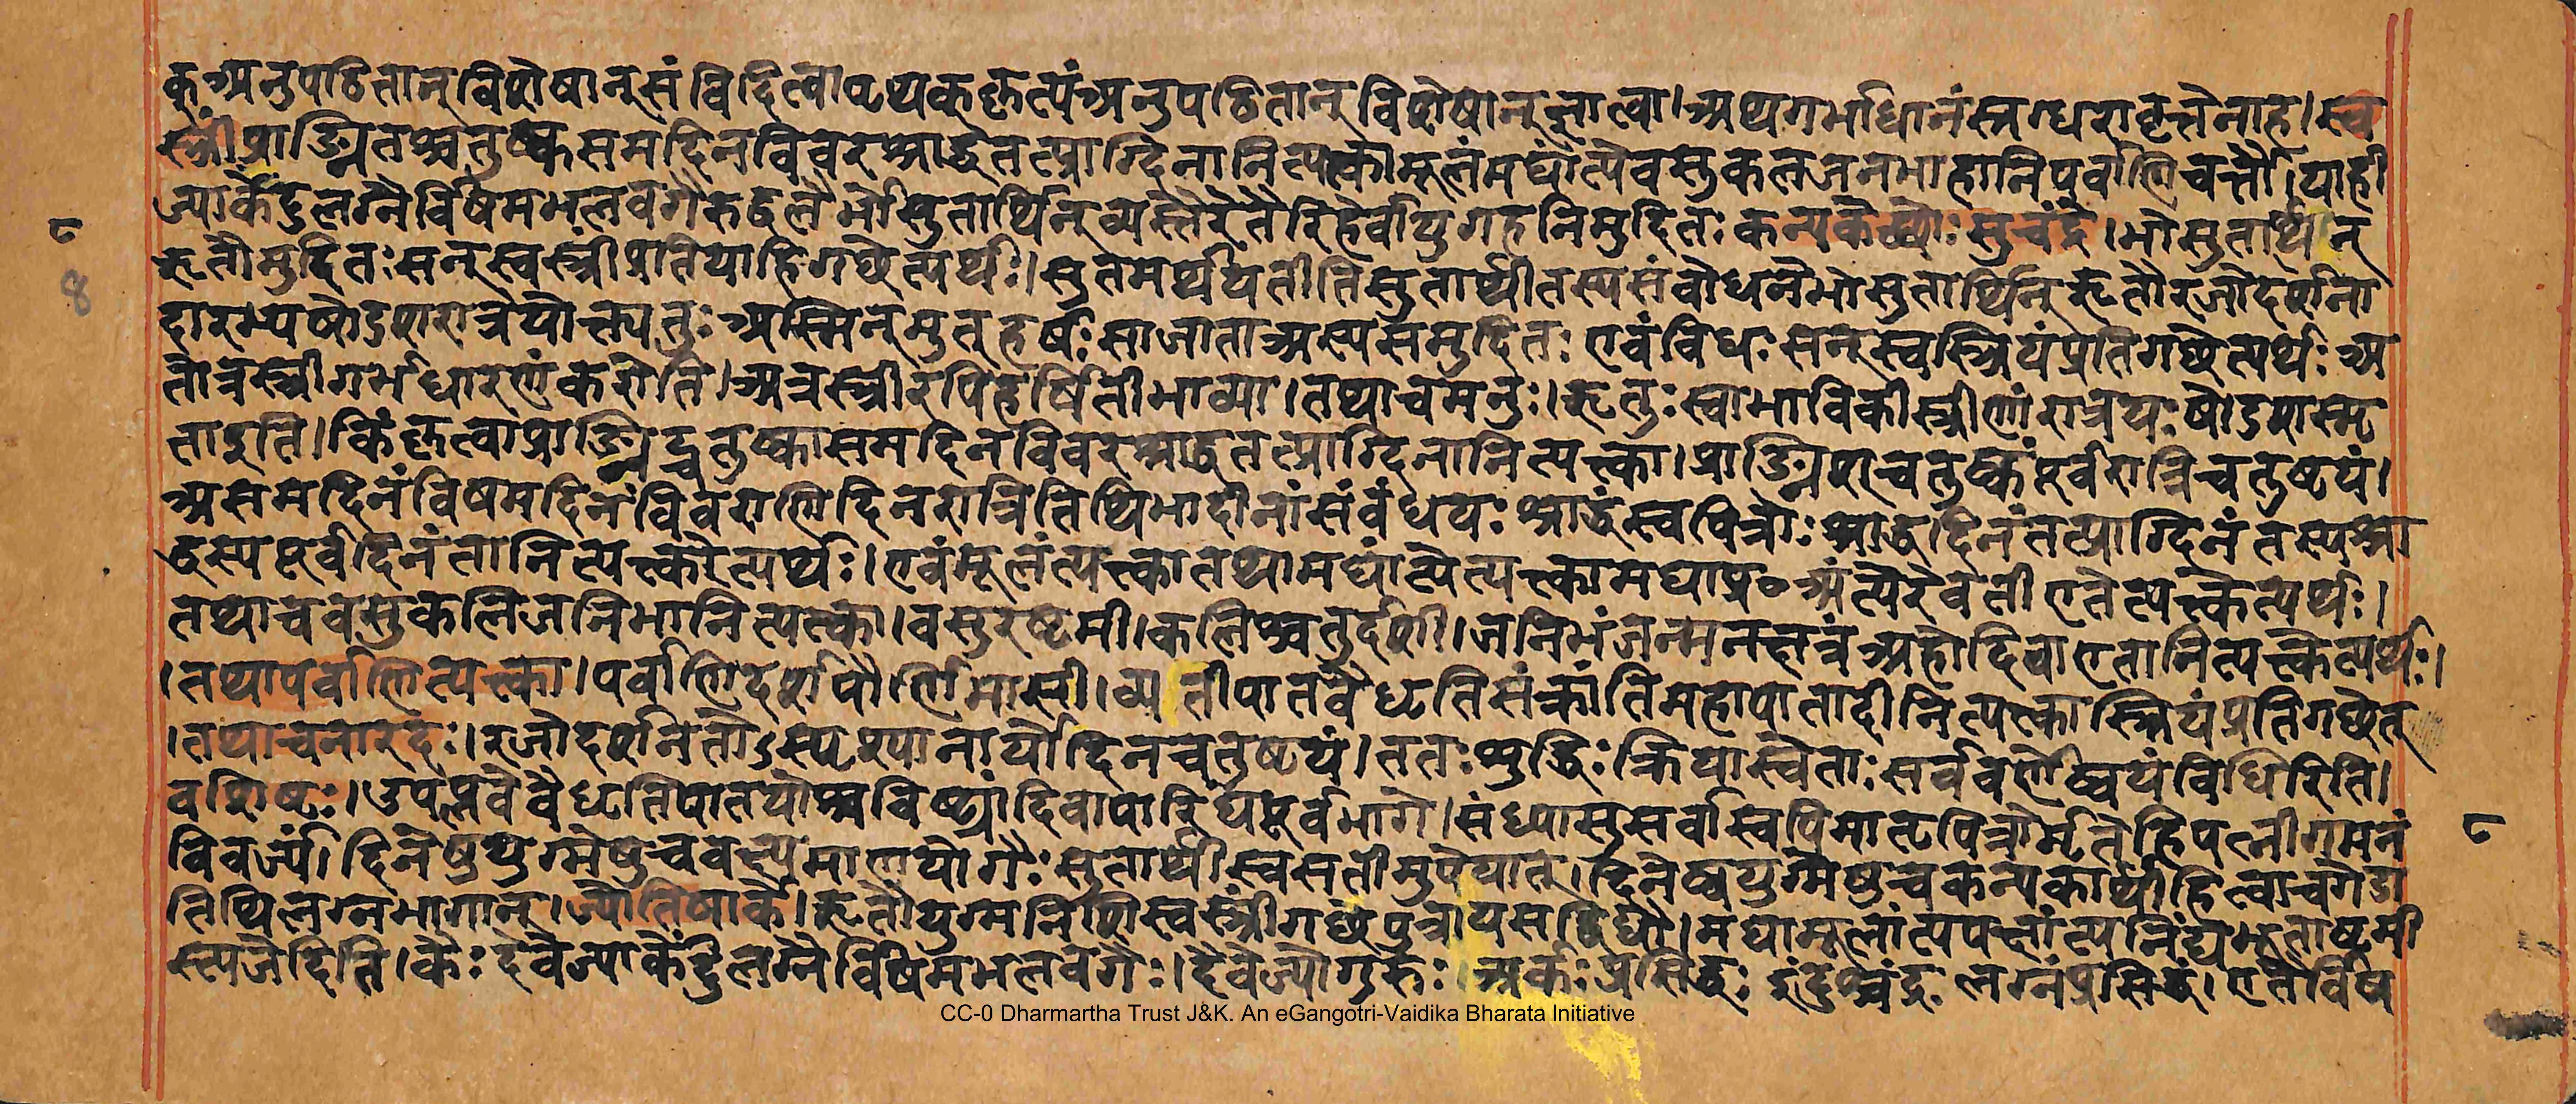 कृअनुपठितान्विशेषान्संविदित्वापृथक्कृत्यंअनुपठितान्विशेषान्ज्ञात्वा।अथगर्भाधानंस्रग्धरावृत्तेनाह।स्व
स्त्रींप्राङ्निशतश्चतुष्कसमदिनविवरश्राद्धतत्प्राग्दिनानित्यक्त्वामूलंमघांत्येवसुकलजनभाहानिपर्वाणिचर्त्तौ।याही
ज्यार्केंदुलग्नैर्विषमभलवगैरुद्बलैर्भोसुतार्थिन्व्यस्तैरेतैरिहैर्वायुगहनिमुदितःकन्यकेच्छोःसुचंद्रे।भोसुतार्थिन्
ऋतौमुदितःसन्स्वस्त्रींप्रतियाहिगच्छेत्यर्थः।सुतमर्थयतीतिसुतार्थीतस्यसंबोधनेभोसुतार्थिन्ऋतौरजोदर्शना
हारभ्यषोडशरात्रयोक्त्यर्तुःअस्मिन्मुत्हर्षःसाजाताअस्यसमुदितःएवंविधःसन्स्वस्त्रियंप्रतिगच्छेत्यर्थःअ
तोत्रस्त्रीगर्भधारणंकरोति।अत्रस्त्रीरपिहर्षितीभाव्या।तथाचमनुः।ऋतुःस्वाभाविकीस्त्रीणांरात्रयःषोडशस्मृ
ताइति।किंकृत्वाप्राङ्निट्चतुष्कासमदिनविवरश्राद्धतत्प्राग्दिनानित्यक्त्वा।प्राङ्निशाचतुष्कंपूर्वरात्रिचतुष्टयं।
असमदिनंविषमदिनंविवराणिदिनरात्रितिथिभादीनांसंबंधयःश्राद्धंस्वपित्रोःश्राद्धदिनंतत्प्राग्दिनंतस्यश्रा
द्धस्यपूर्वदिनंतानित्यक्त्वेत्यर्थः।एवंमूलंत्यक्त्वातथामघांत्येत्यक्त्वामघाप्र॰अंत्यैरेवतीएतेत्यक्त्वेत्यर्थः।
तथाचवसुकलिजनिभानित्यक्त्वा।वसुरष्टमी।कलिश्चतुर्दशी।जनिभंजन्मनक्षत्रंअहोदिवाएतानित्यक्त्वेत्यर्थः।
।तथापर्वाणित्यक्त्वा।पर्वाणिदर्शपौर्णिमासी।व्यतीपातवैधृतिसंक्रांतिमहापातादीनित्यक्त्वास्त्रियंप्रतिगच्छेत्
।तथाचनारदः।रजोदर्शनितोऽस्पृश्यानार्योदिनचतुष्टयं।ततःशुद्धिःक्रियास्वेताःसर्ववर्णेष्वयंविधिरिति।
वशिष्टः।उपप्लवेवैधृतिपातयोश्चविष्ट्यांदिवापारिघपूर्वभागे।संध्यासुसर्वास्वपिमातृपित्रोर्मृतेहिपत्नीगमनं
विवर्ज्यं।दिनेषुयुग्मेषुचवक्ष्यमाणयोगैःसुतार्थीस्वसतीमुपेयात्।दिनेष्वयुग्मेषुचकन्यकार्थीहित्वाचगंडा
तिथिलग्नभागान्।ज्योतिषार्के।ऋतौयुग्मनिशिस्वस्त्रींगच्छेत्पुत्रायसद्विधौ।मघामूलांत्यपक्षांत्यनिंद्यभूताष्टमी
स्त्यजेदिति।कैःदेवेज्यार्केंदुलग्नैर्विषमभलवगैः।देवेज्योगुरुः।अर्कःप्रसिद्धःइंदुश्चंद्रःलग्नंप्रसिद्धं।एतैर्विष
८
४
८
CC-0 Dharmartha Trust J&K. An eGangotri-Vaidika Bharata Initiative